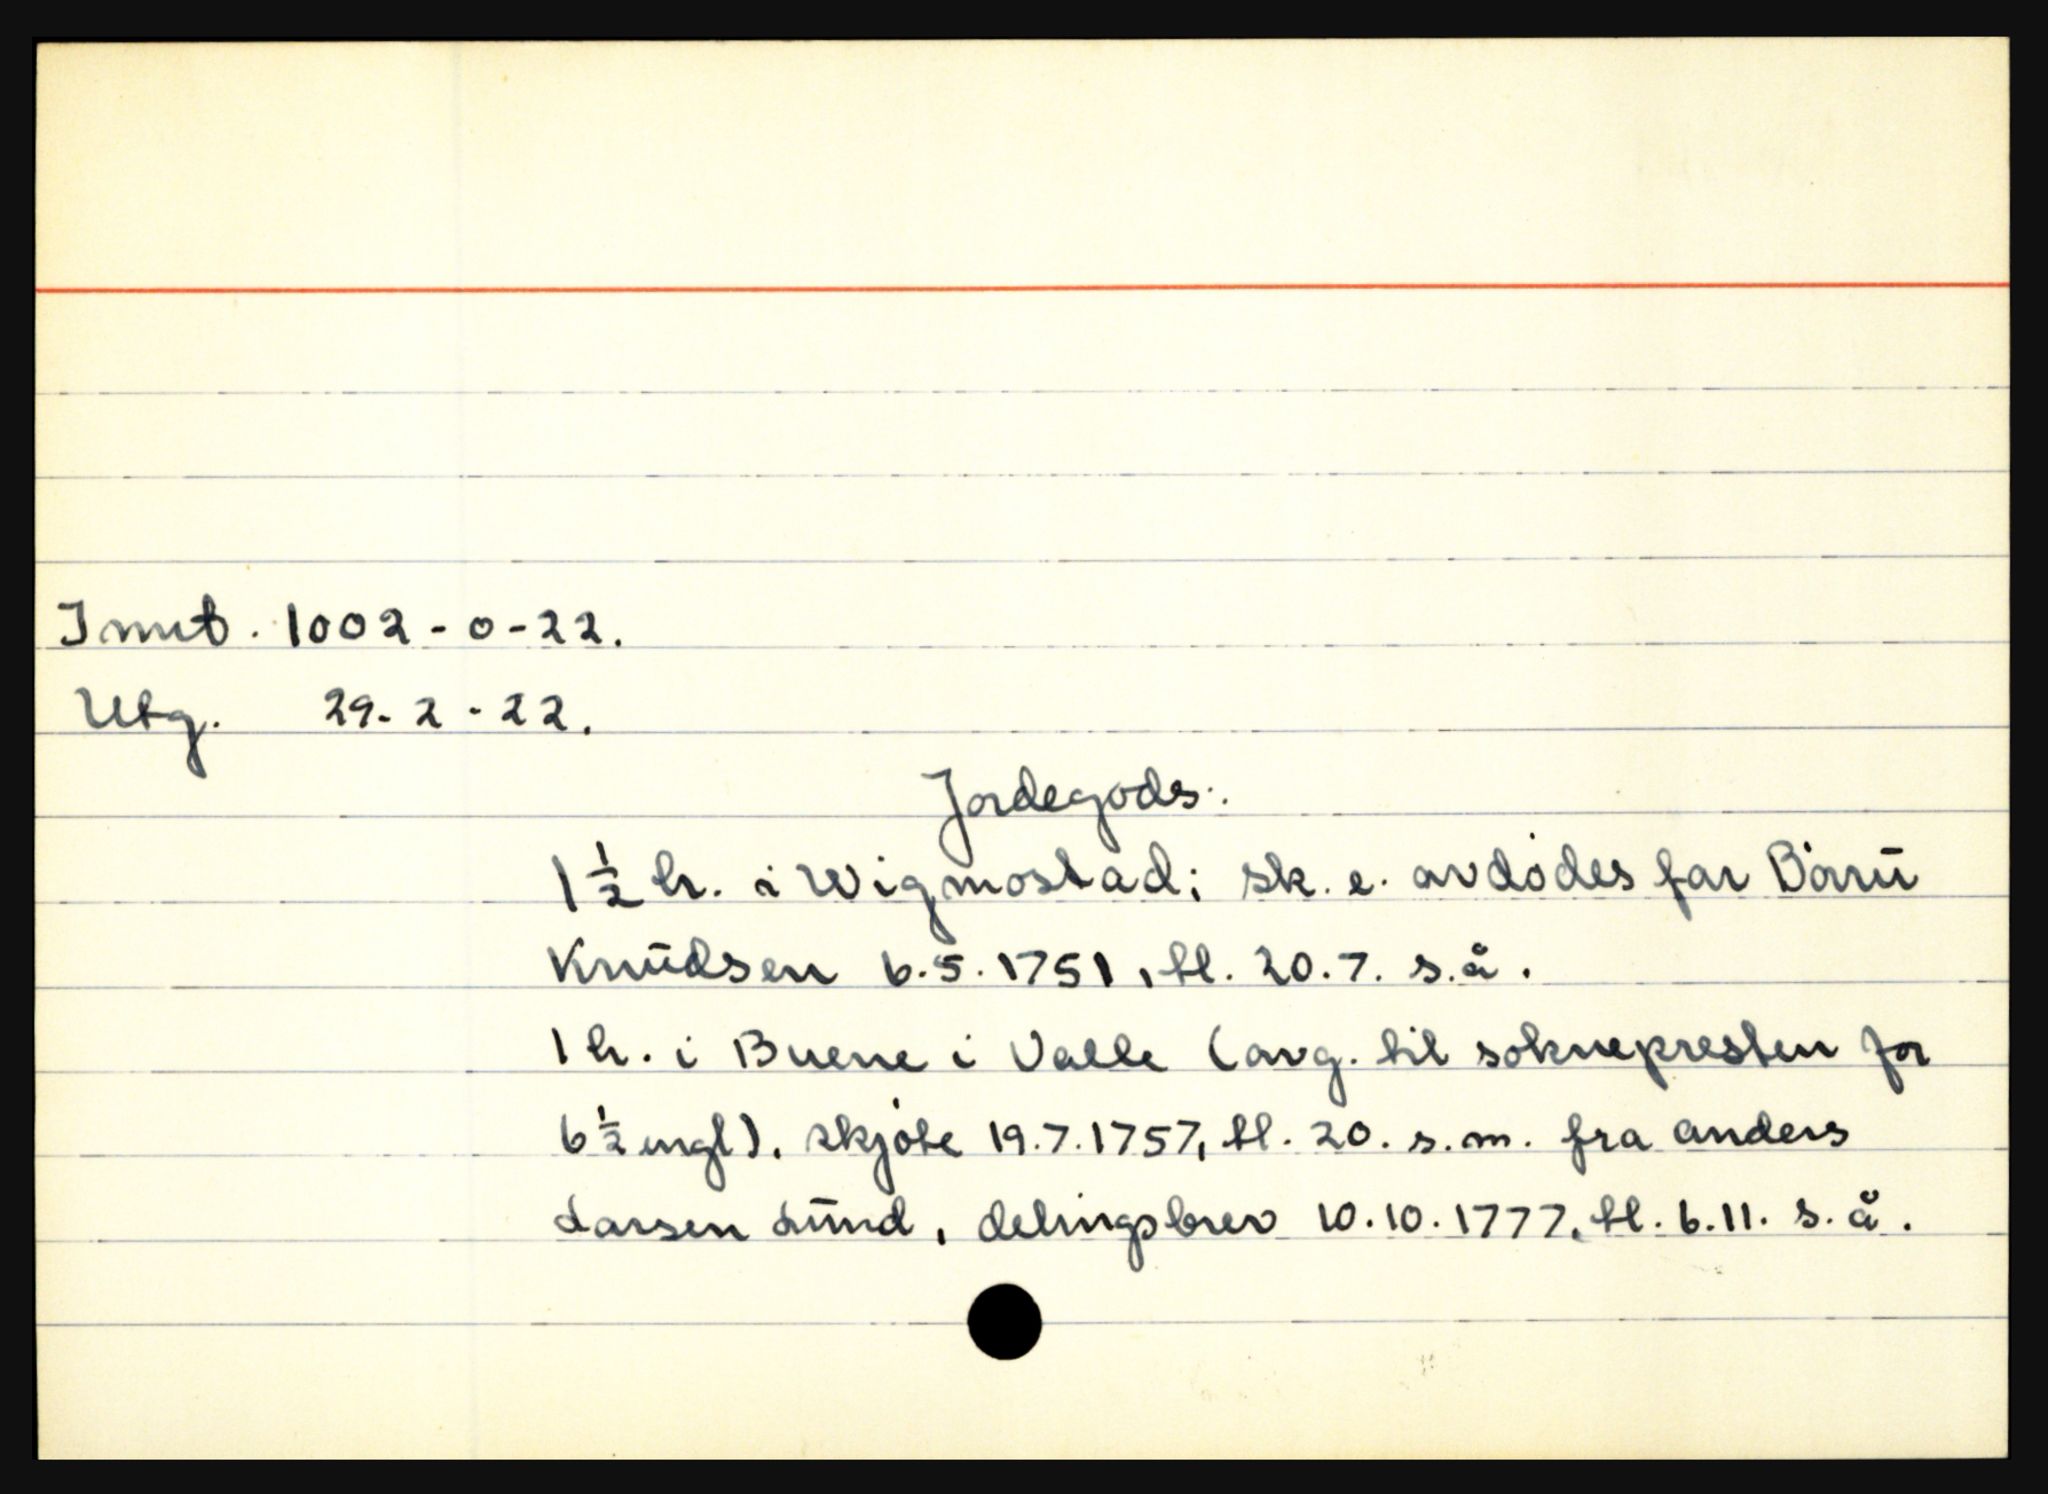 Innt. 1002-0-22.
Utg. 29-2-22.
Jordegods:
1 1/2 h. i Wigmostad; sk. e. avdødes far Börrü
Knüdsen 6.5.1751, tl. 20.7. s.å.
1 h. i Buene i Valle (avg. til soknepresten for
6 1/2 engl). skjøte 19.7.1757, tl. 20. s.m. fra Anders
Larsen Lünd, delingsbrev 10.10.1777, tl. 6.11. s.å.